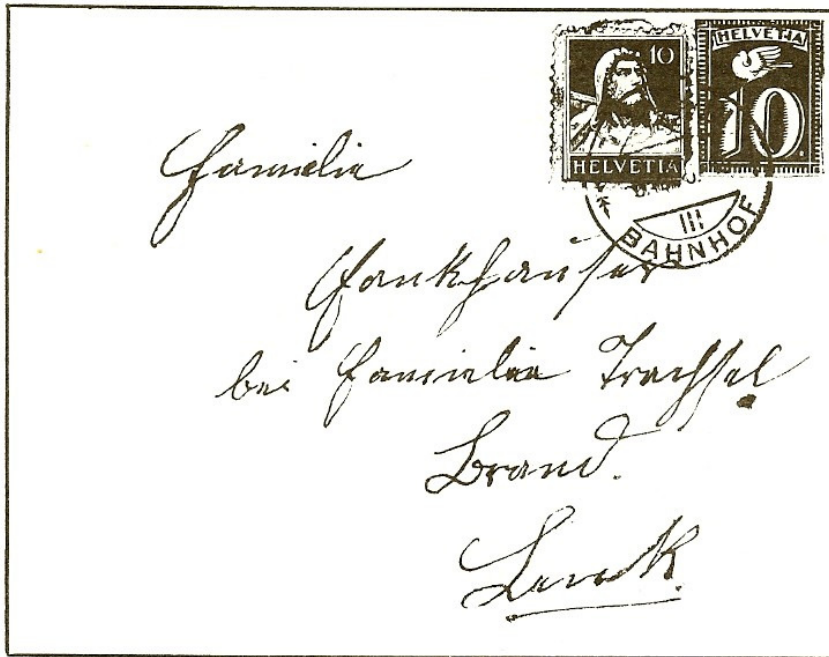 10 HELVETIA
HELVETIA 10
BAHNHOF
Familie
Fankhauser
bei Familie Trachsel
Brand.
Lenk.